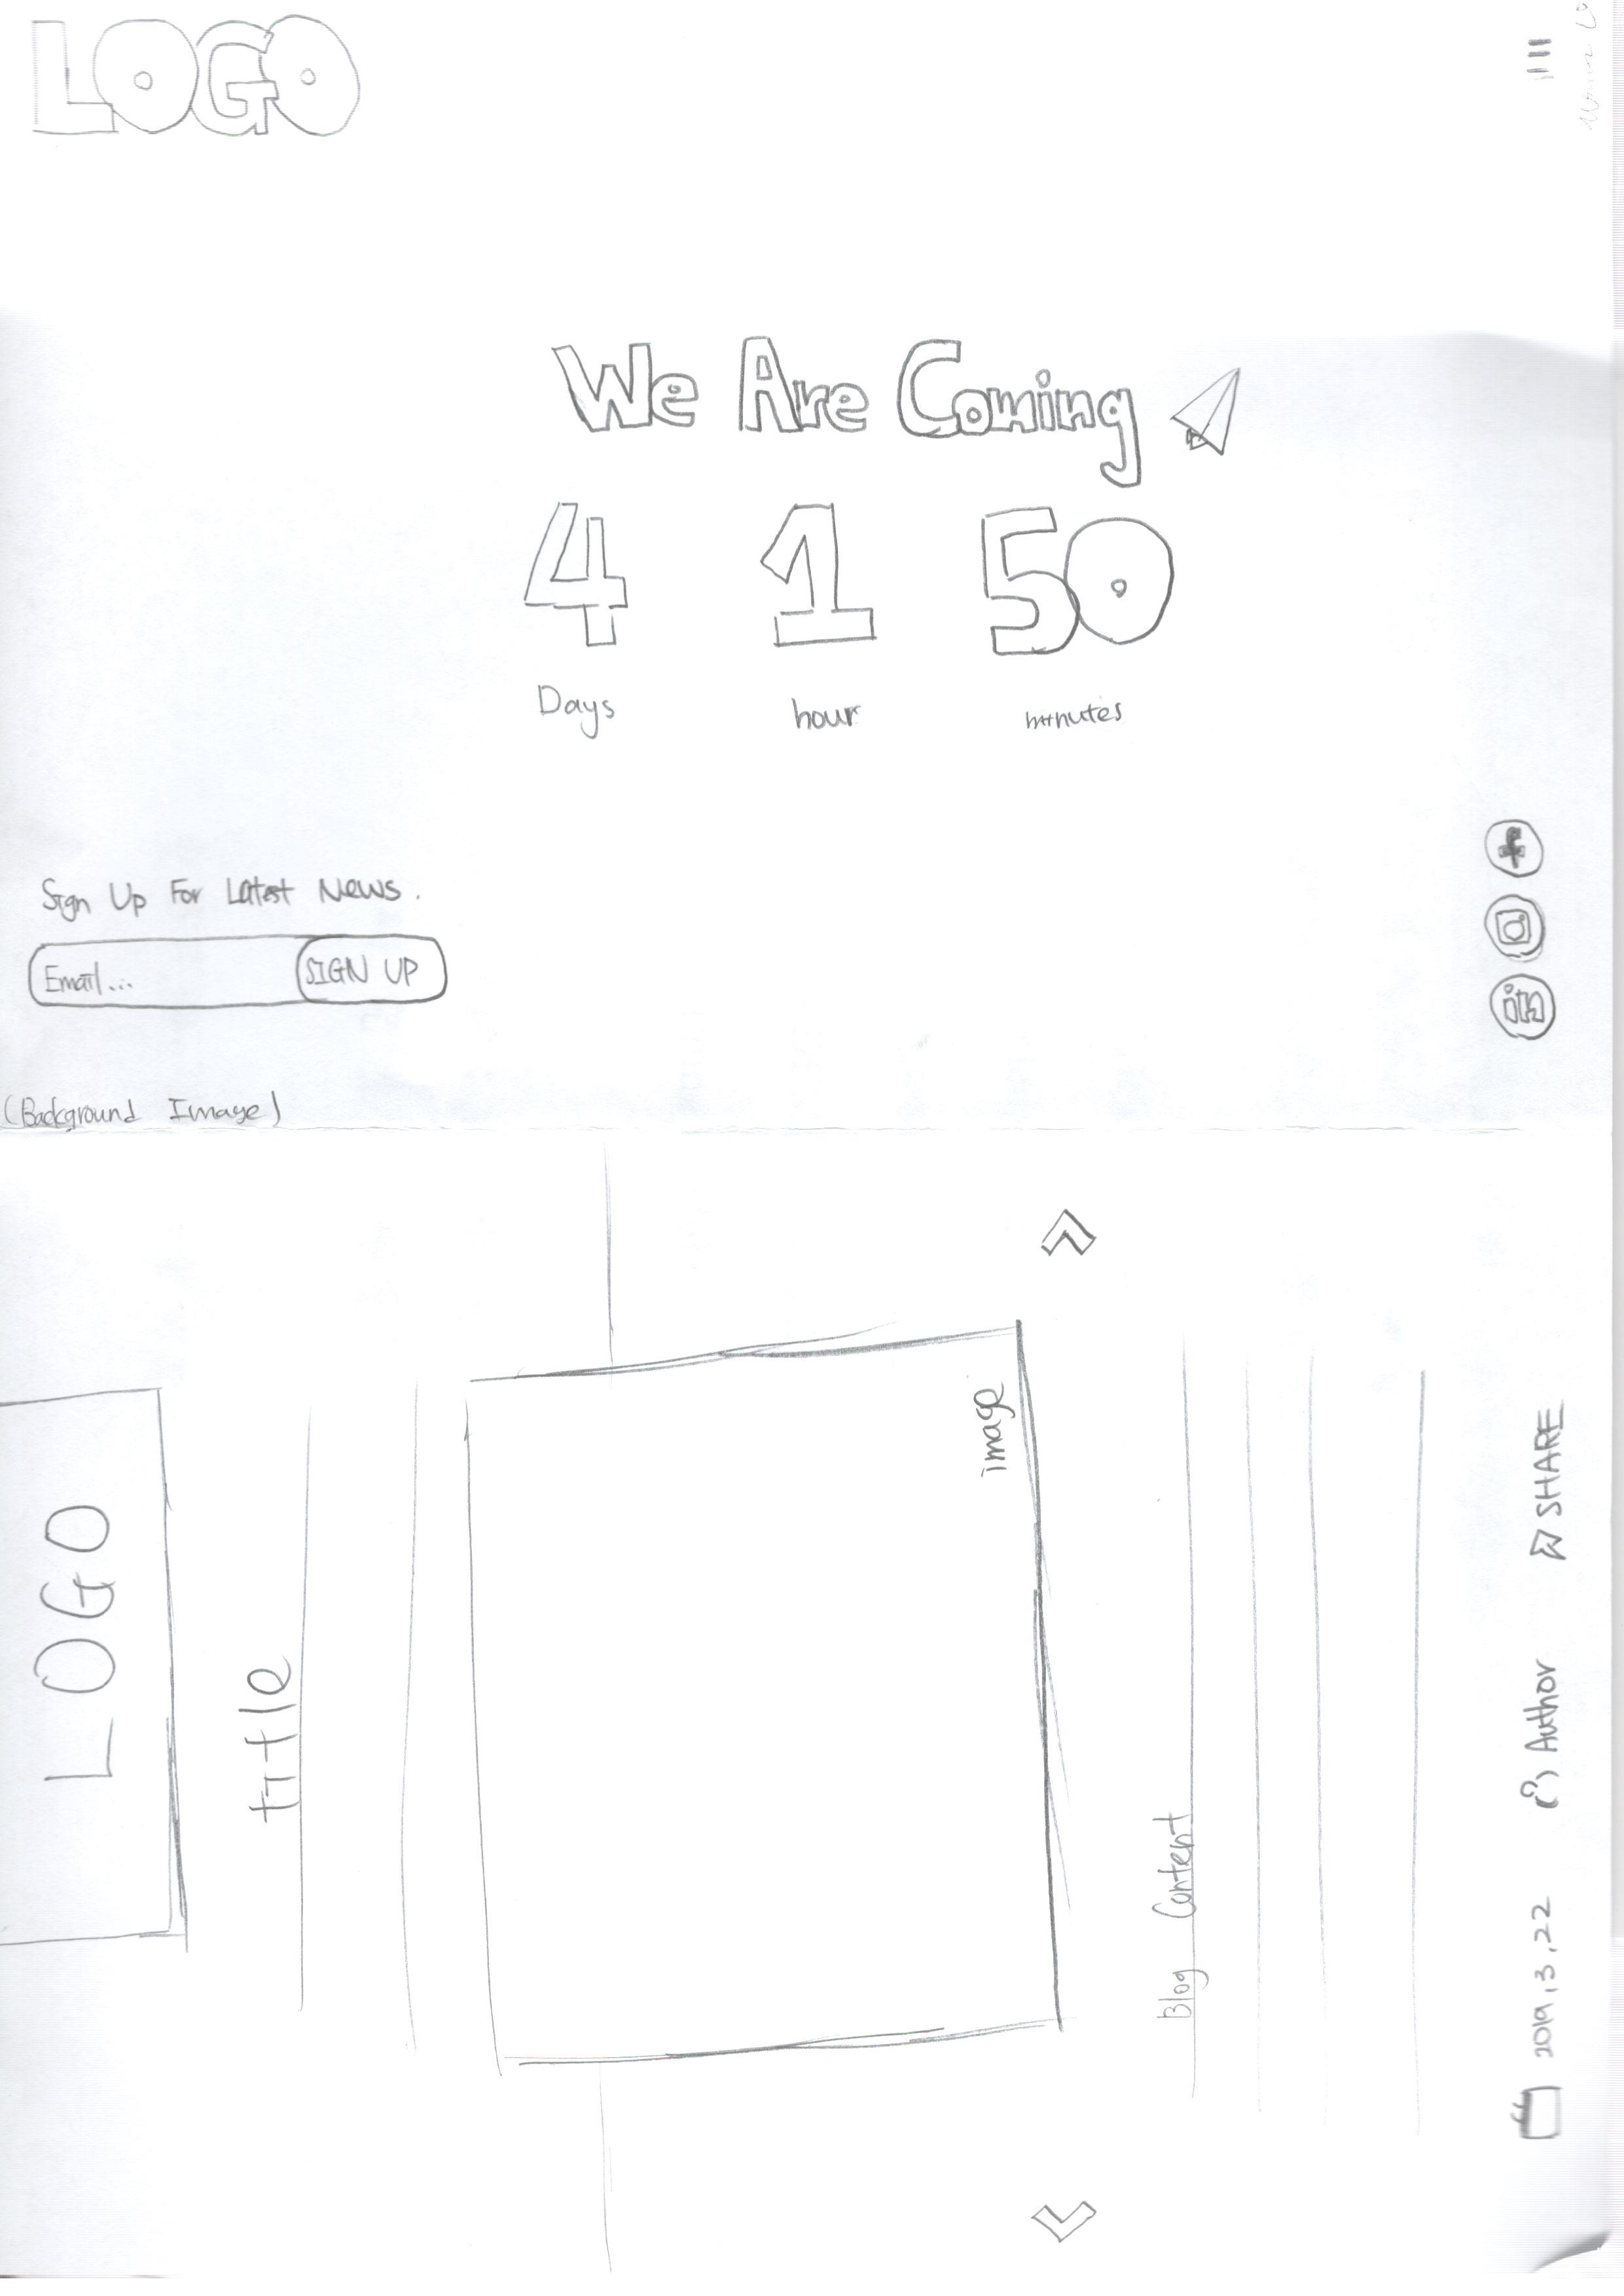 LOGO
We Are Coming
4 1 50
Days hour minutes
Sign Up For Latest News.
Email... SIGN UP
f
in
(Background Image)
LOGO
title
image
Blog Content
2019,3,22 Author SHARE